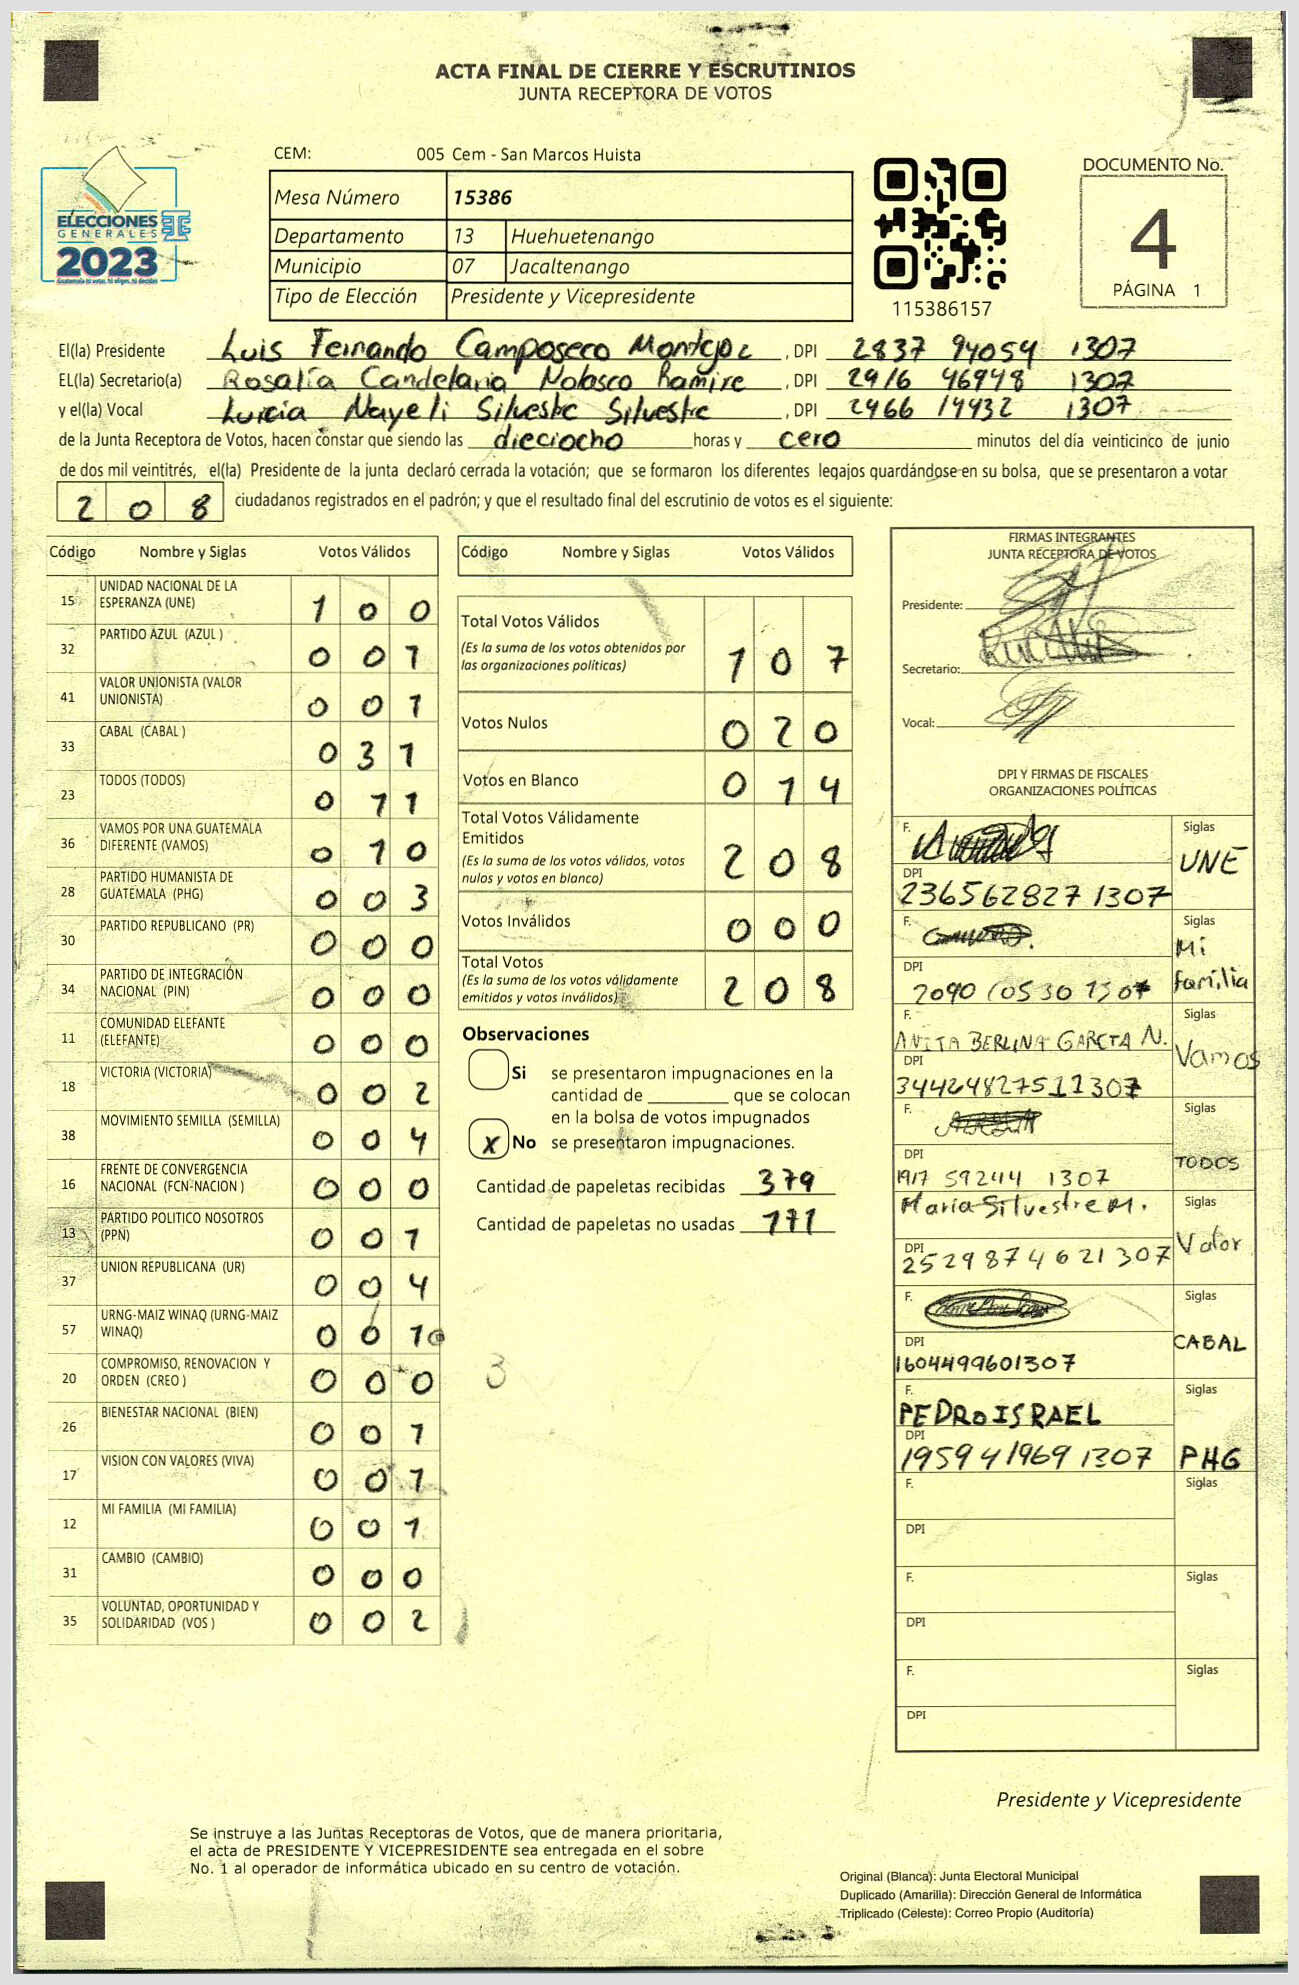 ACTA FINAL DE CIERRE Y ESCRUTINIOS
JUNTA RECEPTORA DE VOTOS
CEM: 005 Cem - San Marcos Huista
DOCUMENTO No.
4
PÁGINA 1
ELECCIONES
GENERALES
2023
Mesa Número 15386
Departamento 13 Huehuetenango
Municipio 07 Jacaltenango
Tipo de Elección Presidente y Vicepresidente
115386157
El(la) Presidente Luis Fernando Camposeco Montejo , DPI 2837 94054 1307
EL(la) Secretario(a) Rosalía Candelaria Nolasco Ramire , DPI 2916 46948 1307
y el(la) Vocal Lucia Nayeli Silvestre Silvestre , DPI 2466 14432 1307
de la Junta Receptora de Votos, hacen constar que siendo las dieciocho horas y cero minutos del día veinticinco de junio
de dos mil veintitrés, el(la) Presidente de la junta declaró cerrada la votación; que se formaron los diferentes legajos guardándose en su bolsa, que se presentaron a votar
208 ciudadanos registrados en el padrón; y que el resultado final del escrutinio de votos es el siguiente:
Código Nombre y Siglas Votos Válidos
15 UNIDAD NACIONAL DE LA ESPERANZA (UNE) 1 0 0
32 PARTIDO AZUL (AZUL ) 0 0 1
41 VALOR UNIONISTA (VALOR UNIONISTA) 0 0 1
33 CABAL (CABAL ) 0 3 1
23 TODOS (TODOS) 0 1 1
36 VAMOS POR UNA GUATEMALA DIFERENTE (VAMOS) 0 1 0
28 PARTIDO HUMANISTA DE GUATEMALA (PHG) 0 0 3
30 PARTIDO REPUBLICANO (PR) 0 0 0
34 PARTIDO DE INTEGRACIÓN NACIONAL (PIN) 0 0 0
11 COMUNIDAD ELEFANTE (ELEFANTE) 0 0 0
18 VICTORIA (VICTORIA) 0 0 2
38 MOVIMIENTO SEMILLA (SEMILLA) 0 0 4
16 FRENTE DE CONVERGENCIA NACIONAL (FCN-NACION ) 0 0 0
13 PARTIDO POLITICO NOSOTROS (PPN) 0 0 1
37 UNION REPUBLICANA (UR) 0 0 4
57 URNG-MAIZ WINAQ (URNG-MAIZ WINAQ) 0 0 1
20 COMPROMISO, RENOVACION Y ORDEN (CREO ) 0 0 0
3
26 BIENESTAR NACIONAL (BIEN) 0 0 1
17 VISION CON VALORES (VIVA) 0 0 1
12 MI FAMILIA (MI FAMILIA) 0 0 1
31 CAMBIO (CAMBIO) 0 0 0
35 VOLUNTAD, OPORTUNIDAD Y SOLIDARIDAD (VOS ) 0 0 2
Código Nombre y Siglas Votos Válidos
Total Votos Válidos
(Es la suma de los votos obtenidos por
las organizaciones políticas) 1 0 7
Votos Nulos 0 2 0
Votos en Blanco 0 1 4
Total Votos Válidamente
Emitidos
(Es la suma de los votos válidos, votos
nulos y votos en blanco) 2 0 8
Votos Inválidos 0 0 0
Total Votos
(Es la suma de los votos válidamente
emitidos y votos inválidos) 2 0 8
Observaciones
Si se presentaron impugnaciones en la
cantidad de ________ que se colocan
en la bolsa de votos impugnados
X No se presentaron impugnaciones.
Cantidad de papeletas recibidas 379
Cantidad de papeletas no usadas 171
FIRMAS INTEGRANTES
JUNTA RECEPTORA DE VOTOS
Presidente:
Secretario:
Vocal:
DPI Y FIRMAS DE FISCALES
ORGANIZACIONES POLÍTICAS
F. Siglas UNE
DPI 236562827 1307
F. Siglas Mi familia
DPI 2090 10530 1307
F. ANITA BERLINA GARCIA N. Siglas Vamos
DPI 3442648275 11307
F. Siglas TODOS
DPI 1917 59244 1307
F. Maria Silvestre M. Siglas Valor
DPI 2529874621307
F. Siglas CABAL
DPI 1604499601307
F. PEDRO ISRAEL Siglas PHG
DPI 1959 41969 1307
F. Siglas
DPI
F. Siglas
DPI
F. Siglas
DPI
Presidente y Vicepresidente
Se instruye a las Juntas Receptoras de Votos, que de manera prioritaria,
el acta de PRESIDENTE Y VICEPRESIDENTE sea entregada en el sobre
No. 1 al operador de informática ubicado en su centro de votación.
Original (Blanca): Junta Electoral Municipal
Duplicado (Amarilla): Dirección General de Informática
Triplicado (Celeste): Correo Propio (Auditoría)